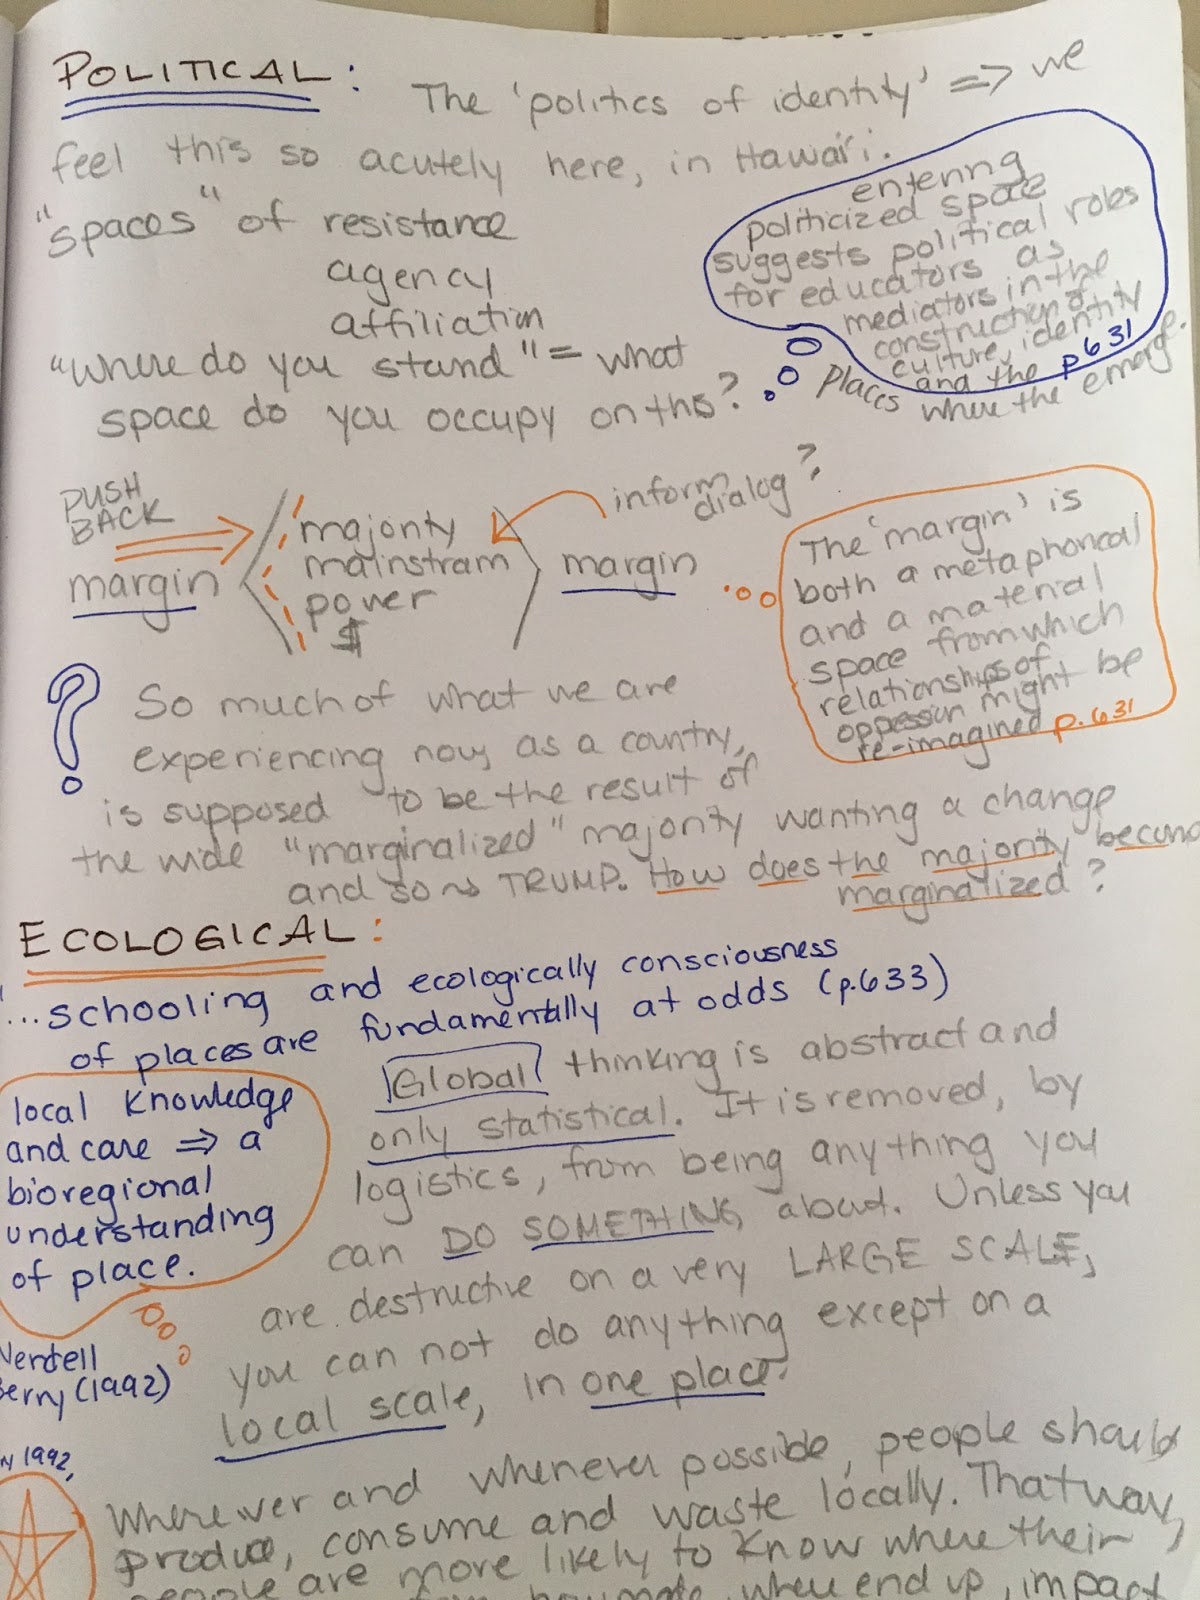 POLITICAL: The 'politics of identity' => we
feel this so acutely here, in Hawai'i.
"spaces" of resistance
agency
affiliation
"where do you stand" = what
space do you occupy on this?
entering
politicized space
suggests political roles
for educators as
mediators in the
construction of
culture, identity
and the p631
Places where the emerge.
PUSH
BACK
margin
majority
mainstram
power
$
margin
inform
dialog?
The 'margin' is
both a metaphorical
and a material
space from which
relationships of
oppession might be
re-imagined p.631
? So much of what we are
experiencing now, as a country,
is supposed to be the result of
the wide "marginalized" majority wanting a change
and so ~> TRUMP. How does the majority become
marginalized?
ECOLOGICAL:
"...schooling and ecologically consciousness
of places are fundamentally at odds (p.633)
local knowledge
and care => a
bioregional
understanding
of place.
Wendell
Berry (1992)
Global thinking is abstract and
only statistical. It is removed, by
logistics, from being anything you
can DO SOMETHING about. Unless you
are destructive on a very LARGE SCALE,
you can not do anything except on a
local scale, in one place.
1992,
Wherever and whenever possible, people should
produce, consume and waste locally. That way,
people are more likely to know where their
when end up, impact